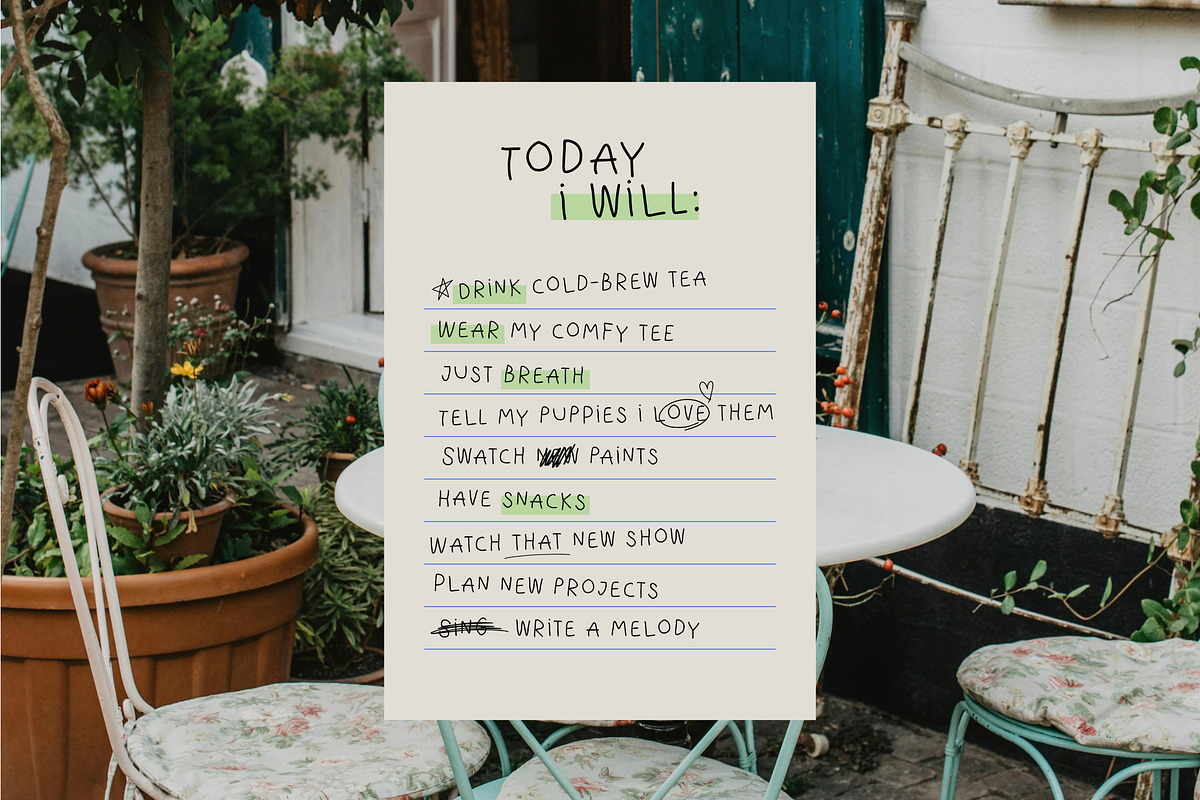 TODAY
i WiLL:
DRiNK COLD-BREW TEA
WEAR MY COMFY TEE
JUST BREATH
TELL MY PUPPiES i LOVE THEM
SWATCH PAiNTS
HAVE SNACKS
WATCH THAT NEW SHOW
PLAN NEW PROJECTS
SiNG WRiTE A MELODY